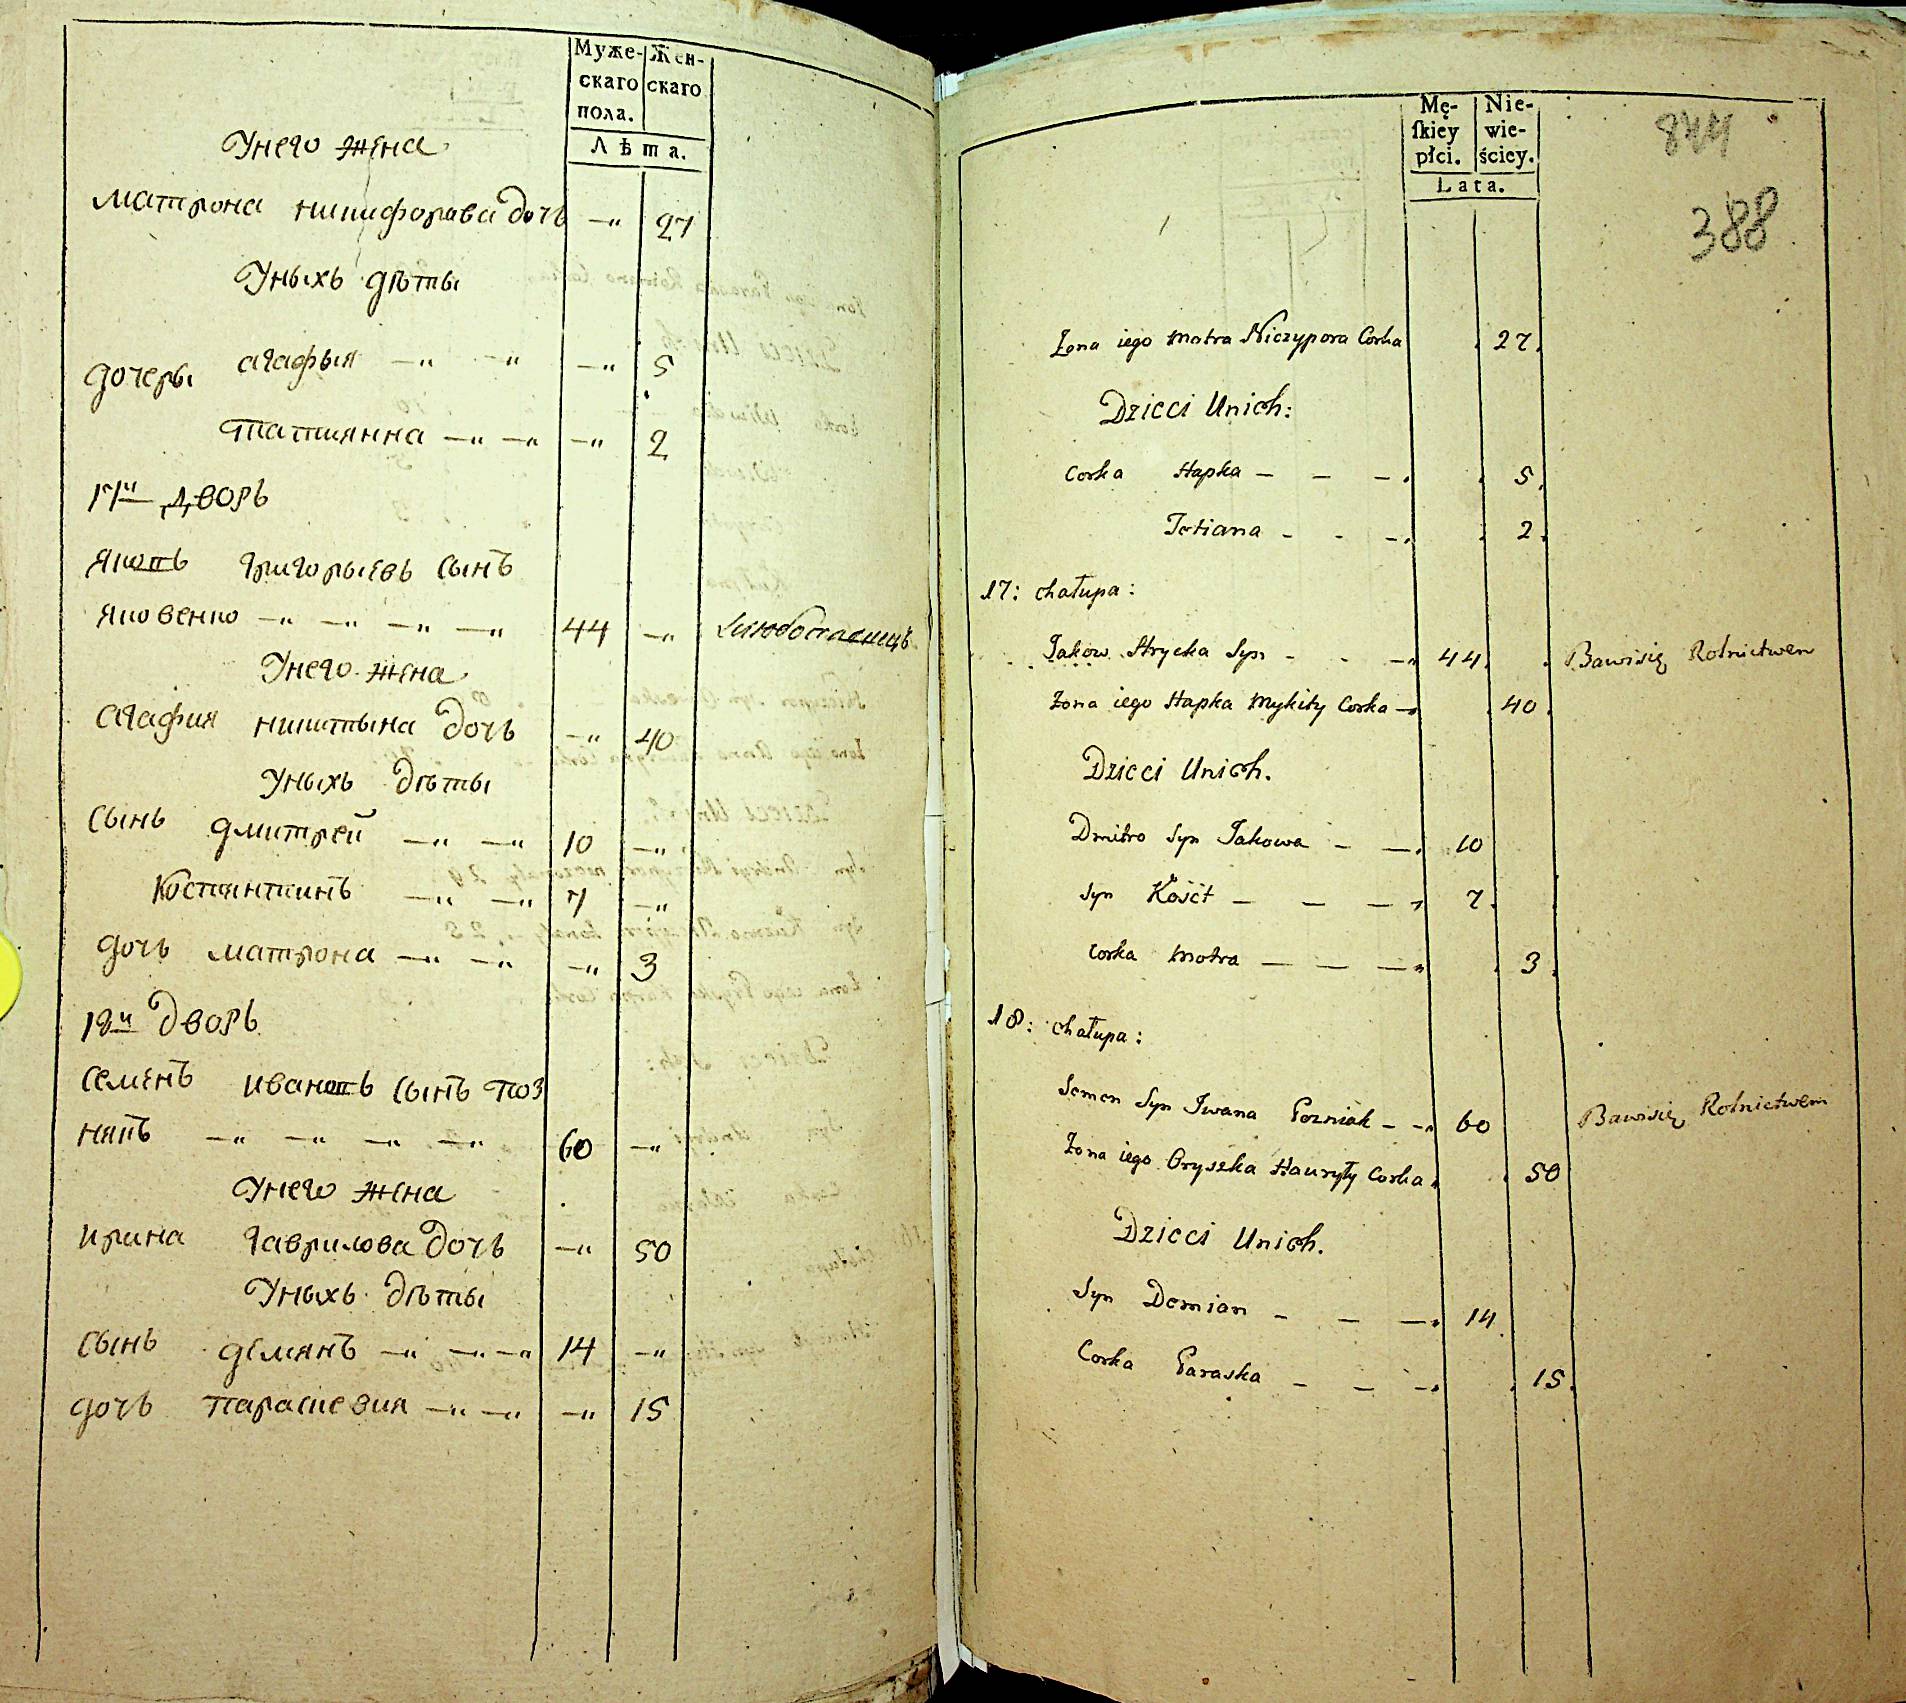 Муже- Жен-
скаго скаго
пола.
Лѣта.
Унего жена
матрона никифорава дочь —„ 27
Уныхъ дѣты
дочеры агафья —„ —„ —„ 5
татиянна —„ —„ —„ 2
17й дворъ
яковъ григорыевъ сынъ
яковенко —„ —„ —„ —„ 44 —„
Унего жена
агафия никитына дочь —„ 40
Уныхъ дѣты
сынъ дмитрей —„ —„ 10 —„
Костянтинъ —„ —„ 7 —„
дочь матрона —„ —„ —„ 3
18й дворъ
семенъ ивановъ сынъ поз
някъ —„ —„ —„ —„ 60 —„
Унего жена
ирина гаврилова дочь —„ 50
Уныхъ дѣты
сынъ демянъ —„ —„ —„ 14 —„
дочь параскевия —„ —„ —„ 15
Mę- Nie-
ſkiey wie-
płci. ściey.
Lata.
844
388
Żona iego Motra Niczypora Corka 27.
Dzieci Unich:
Corka Hapka — — —. 5.
Tetiana — — —. 2.
17: chałupa:
Jakow Hrycka Syn — — — 44. Bawisię Rolnictwem
Żona iego Hapka Mykity Corka — 40.
Dzieci Unich.
Dmitro Syn Jakowa — —. 10
Syn Kośćt — — — 7.
Corka Motra — — — 3.
18: chałupa:
Semen Syn Iwana Pozniak — — 60 Bawisię Rolnictwem
Żona iego Oryszka Hauryły Corka. 50
Dzieci Unich.
Syn Demian — — —. 14.
Corka Paraska — — —. 15.